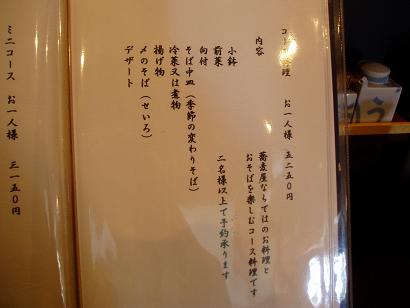 コース料理 お一人様 五二五〇円
蕎麦屋ならではのお料理と
おそばを楽しむコース料理です
二名様以上で予約承ります
内容
小鉢
前菜
向付
そば中皿（季節の変わりそば）
冷菜又は煮物
揚げ物
〆のそば（せいろ）
デザート
ミニコース お一人様 三一五〇円